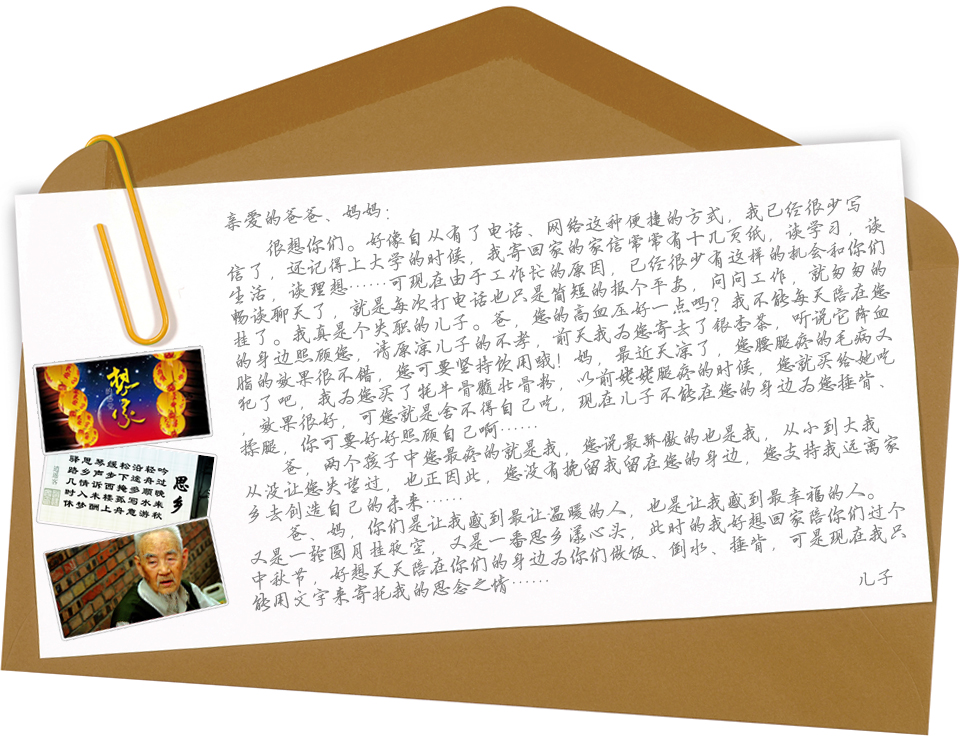 亲爱的爸爸、妈妈：
很想你们。好像自从有了电话、网络这种便捷的方式，我已经很少写
信了，还记得上大学的时候，我寄回家的家信常常有十几页纸，谈学习，谈
生活，谈理想……可现在由于工作忙的原因，已经很少有这样的机会和你们
畅谈聊天了，就是每次打电话也只是简短的报个平安，问问工作，就匆匆的
挂了。我真是个失职的儿子。爸，您的高血压好一点吗？我不能每天陪在您
的身边照顾您，请原凉儿子的不孝，前天我为您寄去了银杏茶，听说它降血
脂的效果很不错，您可要坚持饮用哦！妈，最近天凉了，您腰腿疼的毛病又
犯了吧，我为您买了牦牛骨髓壮骨粉，以前姥姥腿疼的时候，您就买给她吃
，效果很好，可您就是舍不得自己吃，现在儿子不能在您的身边为您捶背、
揉腿，你可要好好照顾自己啊……
爸，两个孩子中您最疼的就是我，您说最骄傲的也是我，从小到大我
从没让您失望过，也正因此，您没有挽留我留在您的身边，您支持我远离家
乡去创造自己的未来……
爸、妈，你们是让我感到最让温暖的人，也是让我感到最幸福的人。
又是一轮圆月挂夜空，又是一番思乡漾心头，此时的我好想回家陪你们过个
中秋节，好想天天陪在你们的身边为你们做饭、倒水、捶背，可是现在我只
能用文字来寄托我的思念之情……
儿子
想家
思乡
吟过晚来秋
轻舟顺水游
沿途多写意
松下掩孤舟
缓步西楼上
琴声诉未酬
思乡情入梦
驿路几时休